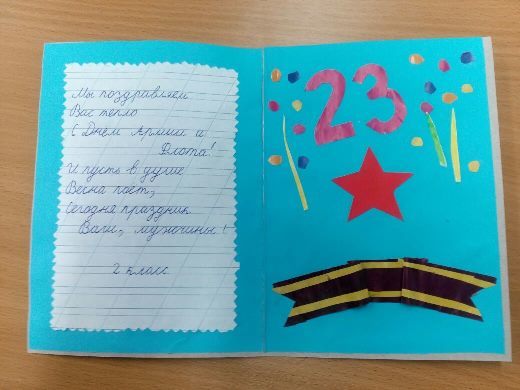 Мы поздравляем
Вас тепло
С Днём Армии и
Флота!
И пусть в душе
Весна поёт,
Сегодня праздник
Ваш, мужчины!
2 класс
23